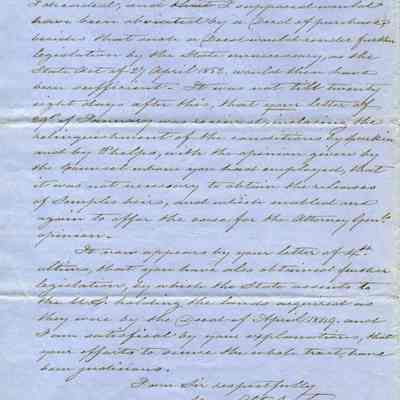 I demanded, and I supposed would
have been obviated by a Deed of purchase,
besides that such a Deed would render further
legislation by the State unnecessary, as the
State Act of 27 April 1852, would then have
been sufficient. It was not till twenty
eight days after this, that your letter of
29th of January was received, inclosing the
relinquishment of the conditions by
and by Phelps, with the opinion given by
the Counsel whom you had employed, that
it was not necessary to obtain the releases
of Samples heirs, and which enabled me
again to offer the case for the Attorney Genl.
opinion.
It now appears by your letter of 4th
ultimo, that you have also obtained further
legislation, by which the State assents to
the U.S. holding the lands acquired as
they were by the Deed of April 1849. and
I am satisfied by your explanations, that
your efforts to secure the whole tract, have
been judicious.
I am Sir respectfully